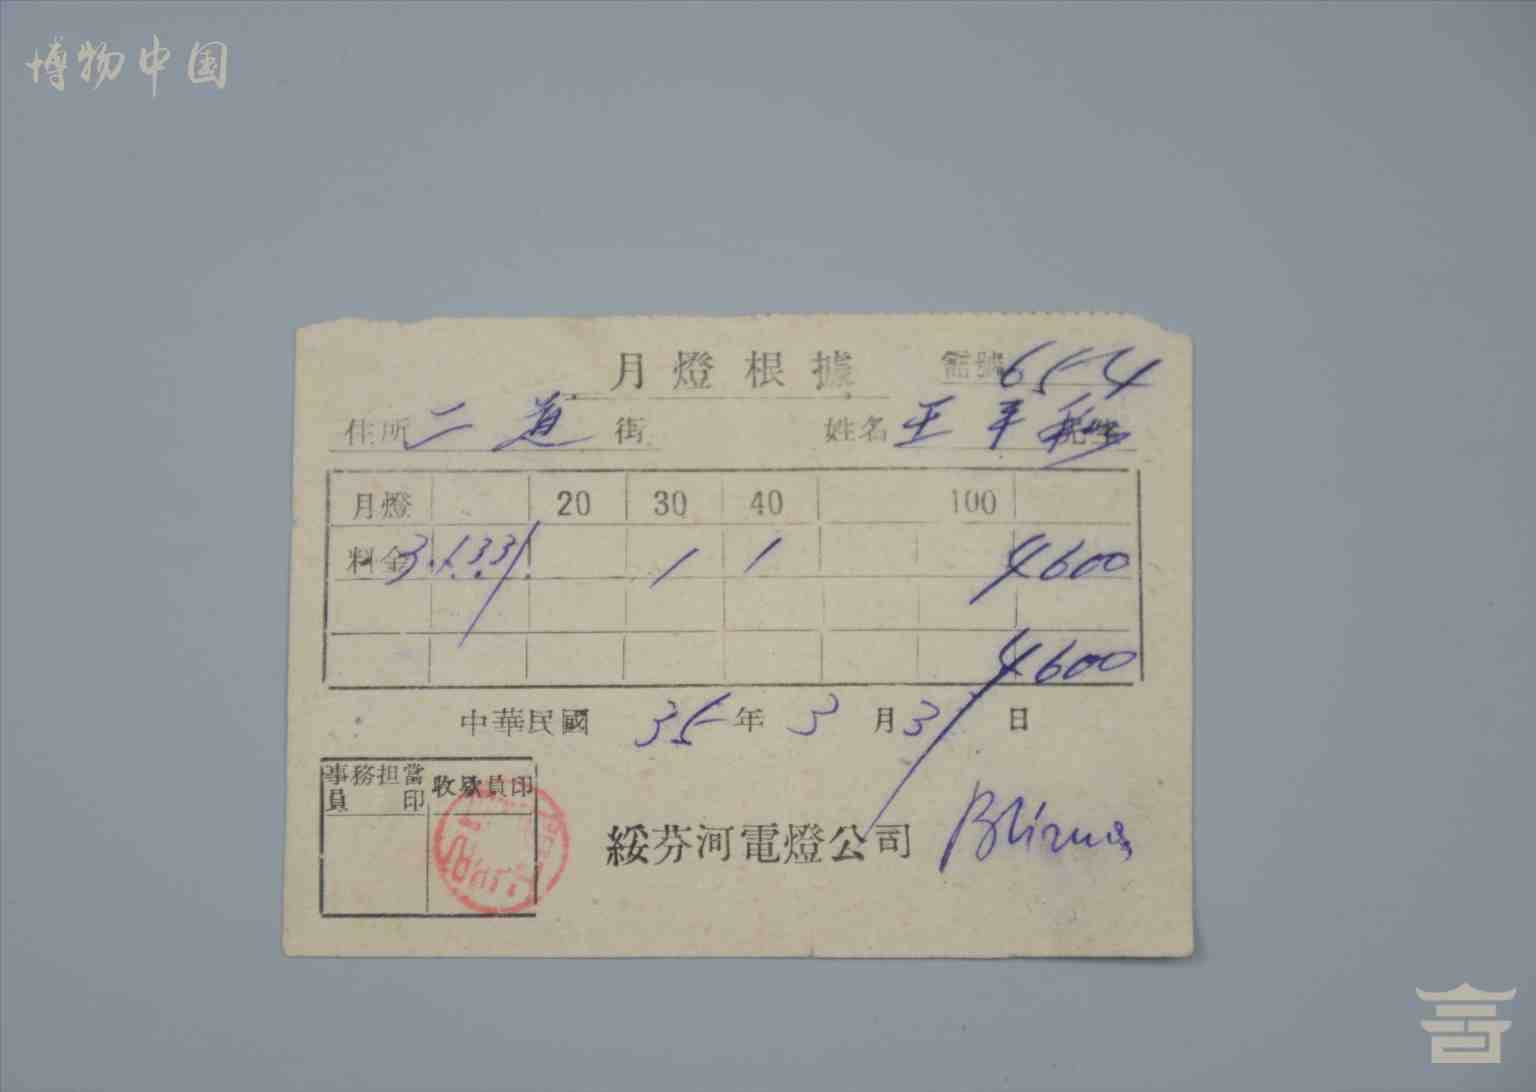 博物中国
月燈根據 號654
住所 二道街 姓名 王平
月燈 20 30 40 100
料金 3.1.331. 1 1 4600
4600
中華民國 35年3月3日
事務担當員印 收款員印
綏芬河電燈公司